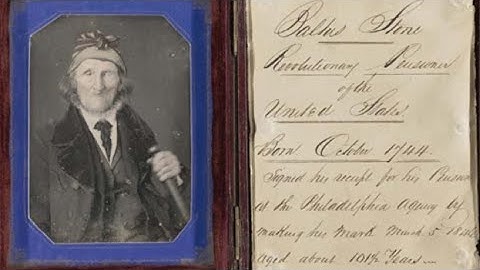 Baltus Stone
Revolutionary Pensioner
of the
United States.
Born October 1744.
Signed his receipt for his Pension
at the Philadelphia Agency by
making his mark March 5
aged about 101½ Years—